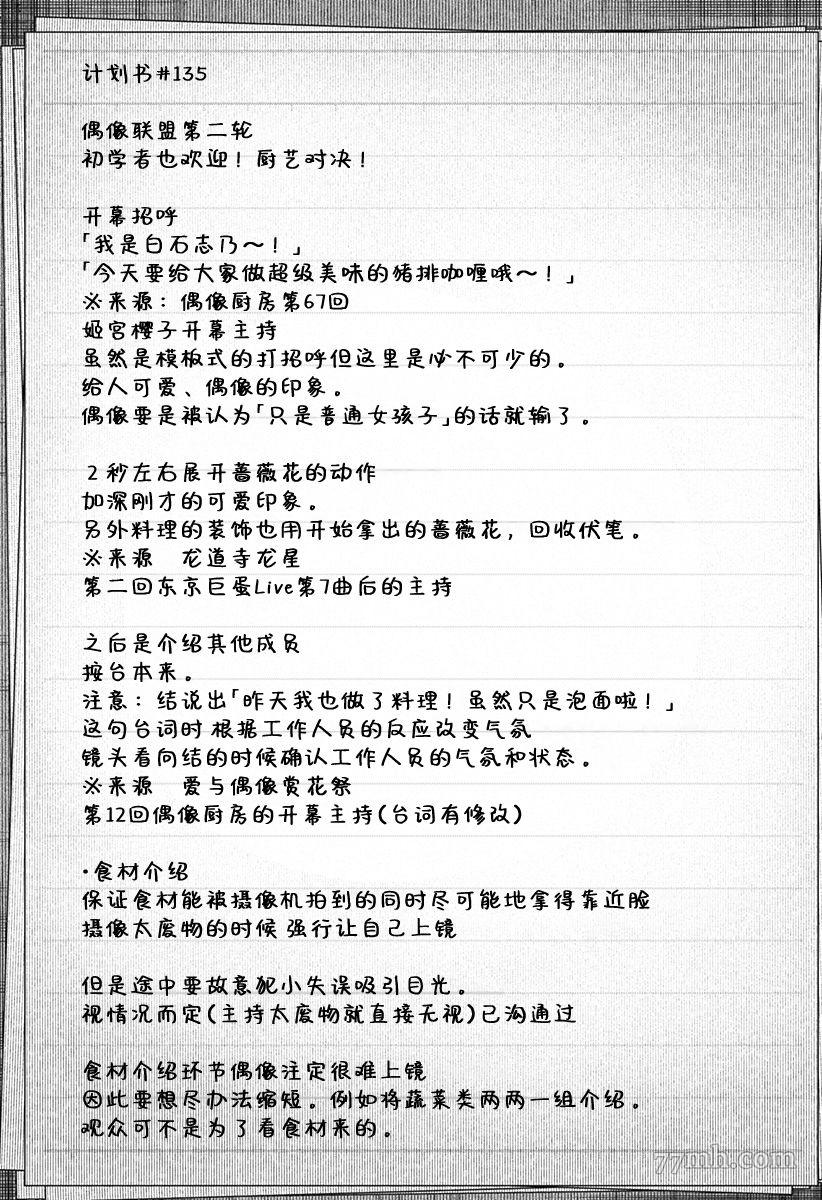 计划书#135
偶像联盟第二轮
初学者也欢迎！厨艺对决！
开幕招呼
「我是白石志乃～！」
「今天要给大家做超级美味的猪排咖喱哦～！」
※来源：偶像厨房第67回
姬宫樱子开幕主持
虽然是模板式的打招呼但这里是必不可少的。
给人可爱、偶像的印象。
偶像要是被认为「只是普通女孩子」的话就输了。
2秒左右展开蔷薇花的动作
加深刚才的可爱印象。
另外料理的装饰也用开始拿出的蔷薇花，回收伏笔。
※来源　龙道寺龙星
第二回东京巨蛋Live第7曲后的主持
之后是介绍其他成员
按台本来。
注意：结说出「昨天我也做了料理！虽然只是泡面啦！」
这句台词时 根据工作人员的反应改变气氛
镜头看向结的时候确认工作人员的气氛和状态。
※来源　爱与偶像赏花祭
第12回偶像厨房的开幕主持(台词有修改)
·食材介绍
保证食材能被摄像机拍到的同时尽可能地拿得靠近脸
摄像太废物的时候 强行让自己上镜
但是途中要故意犯小失误吸引目光。
视情况而定(主持太废物就直接无视)已沟通过
食材介绍环节偶像注定很难上镜
因此要想尽办法缩短。例如将蔬菜类两两一组介绍。
观众可不是为了看食材来的。
77mh.com